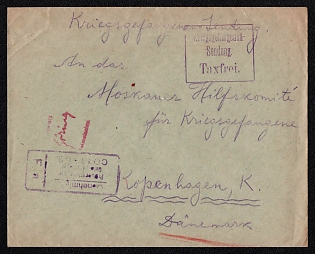 Kriegsgefangenen Sendung.
Kriegsgefangenen-
Sendung.
Taxfrei.
An das
Moskauer Hilfskomité
für Kriegsgefangene
Kopenhagen, K.
Dänemark